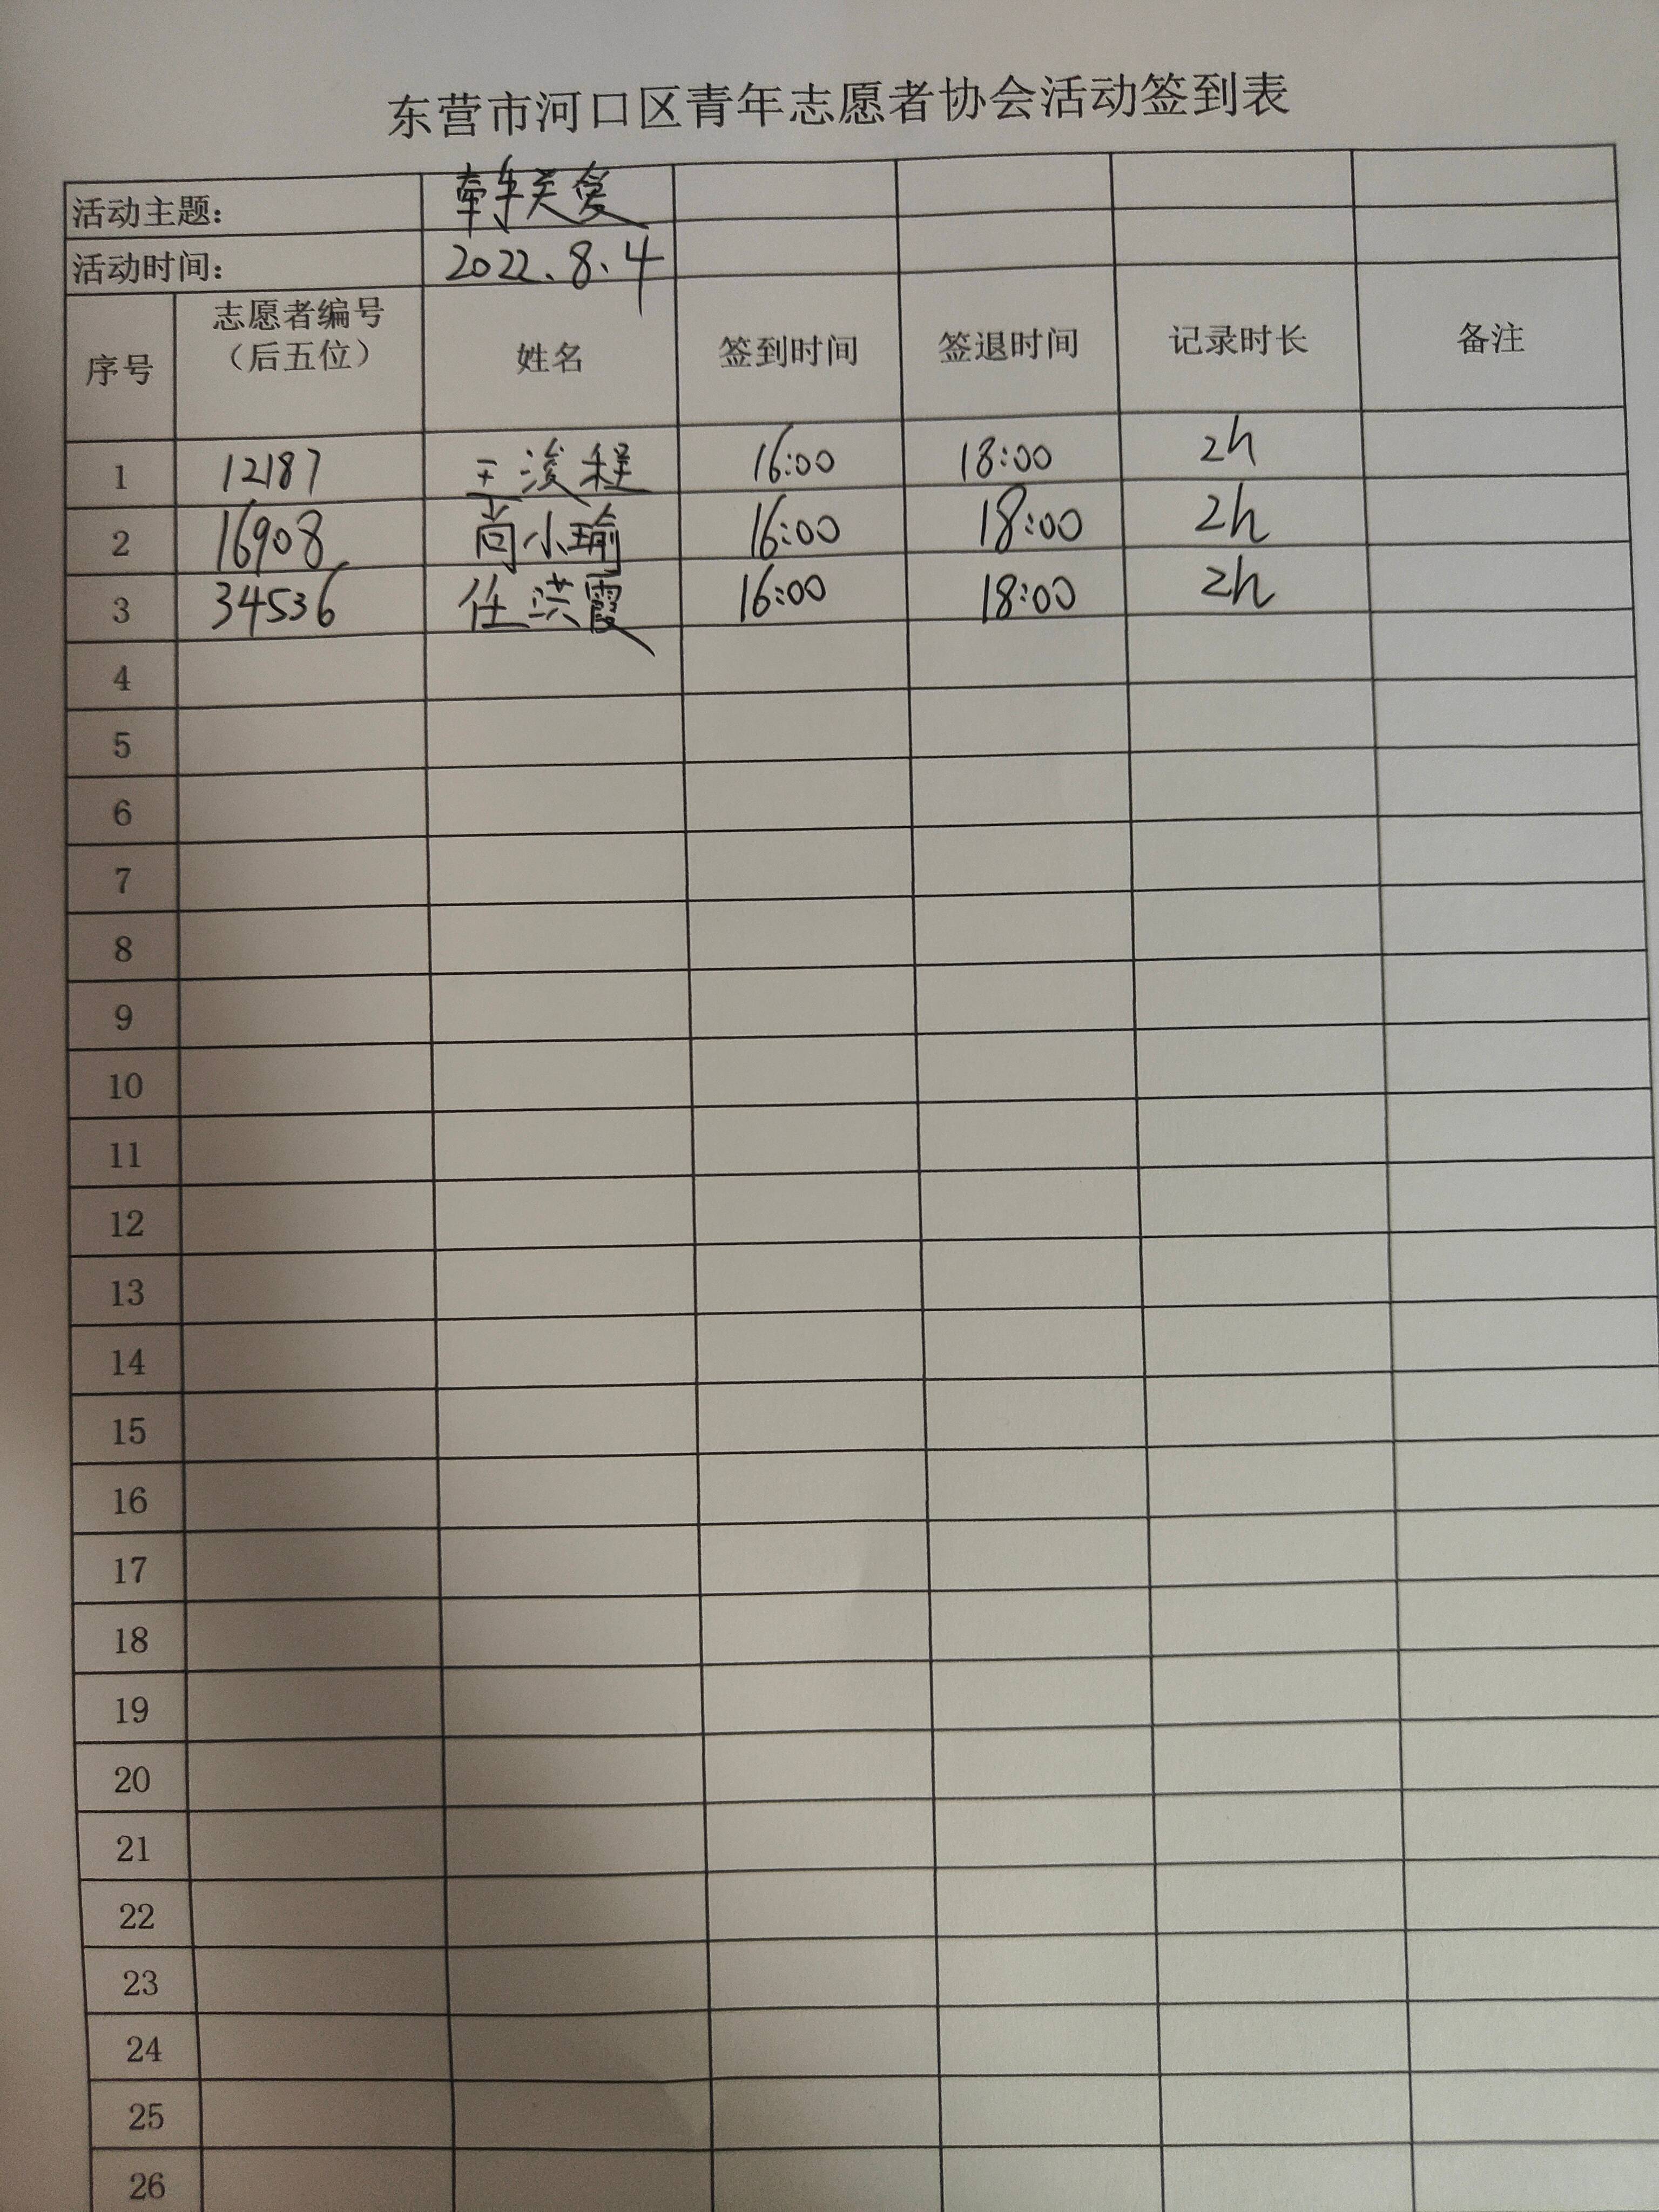 东营市河口区青年志愿者协会活动签到表
活动主题: 牵手关爱
活动时间: 2022.8.4
序号 志愿者编号（后五位） 姓名 签到时间 签退时间 记录时长 备注
1 12187 王浚程 16:00 18:00 2h
2 16908 尚小瑜 16:00 18:00 2h
3 34536 任洪霞 16:00 18:00 2h
4
5
6
7
8
9
10
11
12
13
14
15
16
17
18
19
20
21
22
23
24
25
26